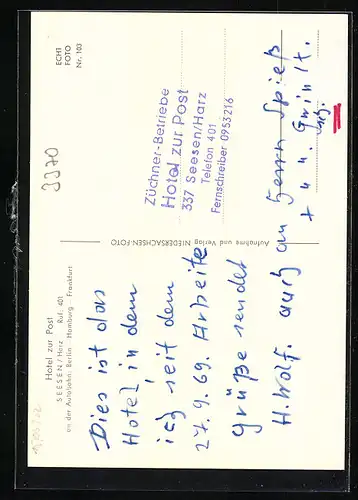 Hotel zur Post
SEESEN/Harz Ruf: 401
an der Autobahn: Berlin - Hamburg - Frankfurt
Dies ist das
Hotel in dem
ich seit dem
27.9.69. Arbeite
Grüße sendet
H. Wolf. auch an Herrn Spieß
Aufnahme und Verlag NIEDERSACHSEN-FOTO
Züchner-Betriebe
Hotel zur Post
337 Seesen/Harz
Telefon 401
Fernschreiber 0953216
3370
ECHT
FOTO
Nr. 103